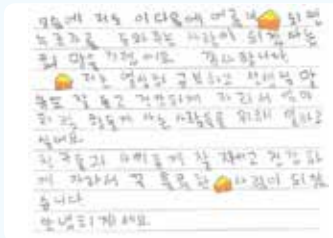 저는 이 다음에 어른이 되면
누군가를 도와주는 사람이 되겠다는
감사합니다
저는 열심히 공부하고 선생님 말
씀도 잘 듣고 건강하게 자라서 엄마
힘들게 사는 사람들을 위해 일하고
싶어요.
친구들과 사이좋게 잘 지내고 건강하
게 자라서 꼭 훌륭한 사람이 되겠
습니다
안녕히계세요.